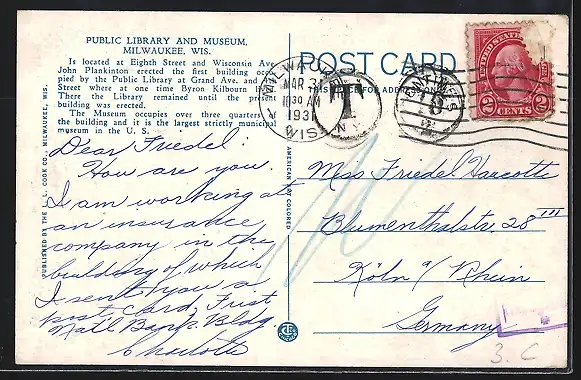 PUBLIC LIBRARY AND MUSEUM,
MILWAUKEE, WIS.
Is located at Eighth Street and Wisconsin Ave
John Plankinton erected the first building occu-
pied by the Public Library at Grand Ave. and
Street where at one time Byron Kilbourn
There the Library remained until the present
building was erected.
The Museum occupies over three quarters of
the building and it is the largest strictly municipal
museum in the U. S.
Dear Friedel:
How are you.
I am working at
an insurance
company in the
building of which
I sent you a
post card, First
Natl Bank Bldg
Charlotte
PUBLISHED BY THE E. C. COOK CO., MILWAUKEE, WIS.
AMERICAN ART COLORED
POST CARD
THIS SPACE FOR ADDRESS ONLY
MILWAUKEE
MAR 31
10 30 AM
1931
WIS.
T
N.Y.
CENTIMES
UNITED STATES
2 CENTS 2
Miss Friedel Haucotte
Blumenthalstr. 28 III
Köln a/ Rhein
Germany
3. C